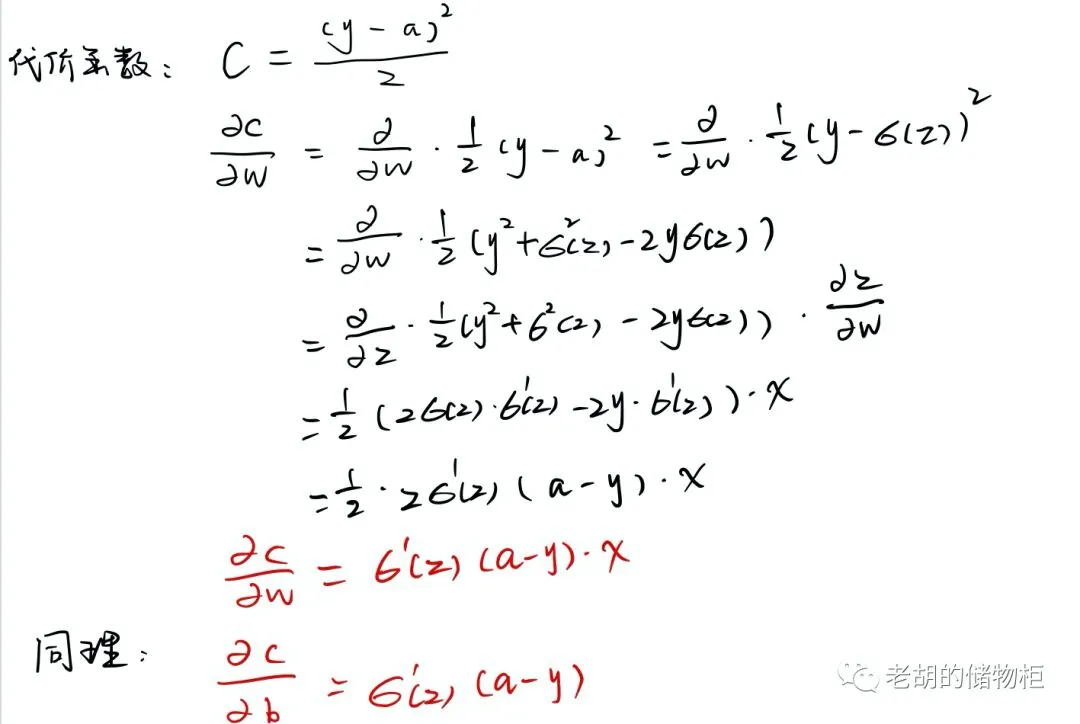 代价函数： C = (y-a)²/2
∂C/∂w = ∂/∂w · 1/2 (y-a)² = ∂/∂w · 1/2 (y-σ(z))²
= ∂/∂w · 1/2 (y²+σ²(z)-2yσ(z))
= ∂/∂z · 1/2 (y²+σ²(z)-2yσ(z)) · ∂z/∂w
= 1/2 (2σ(z)·σ'(z)-2y·σ'(z))·x
= 1/2 · 2σ'(z) (a-y)·x
∂C/∂w = σ'(z) (a-y)·x
同理： ∂C/∂b = σ'(z) (a-y)
老胡的储物柜